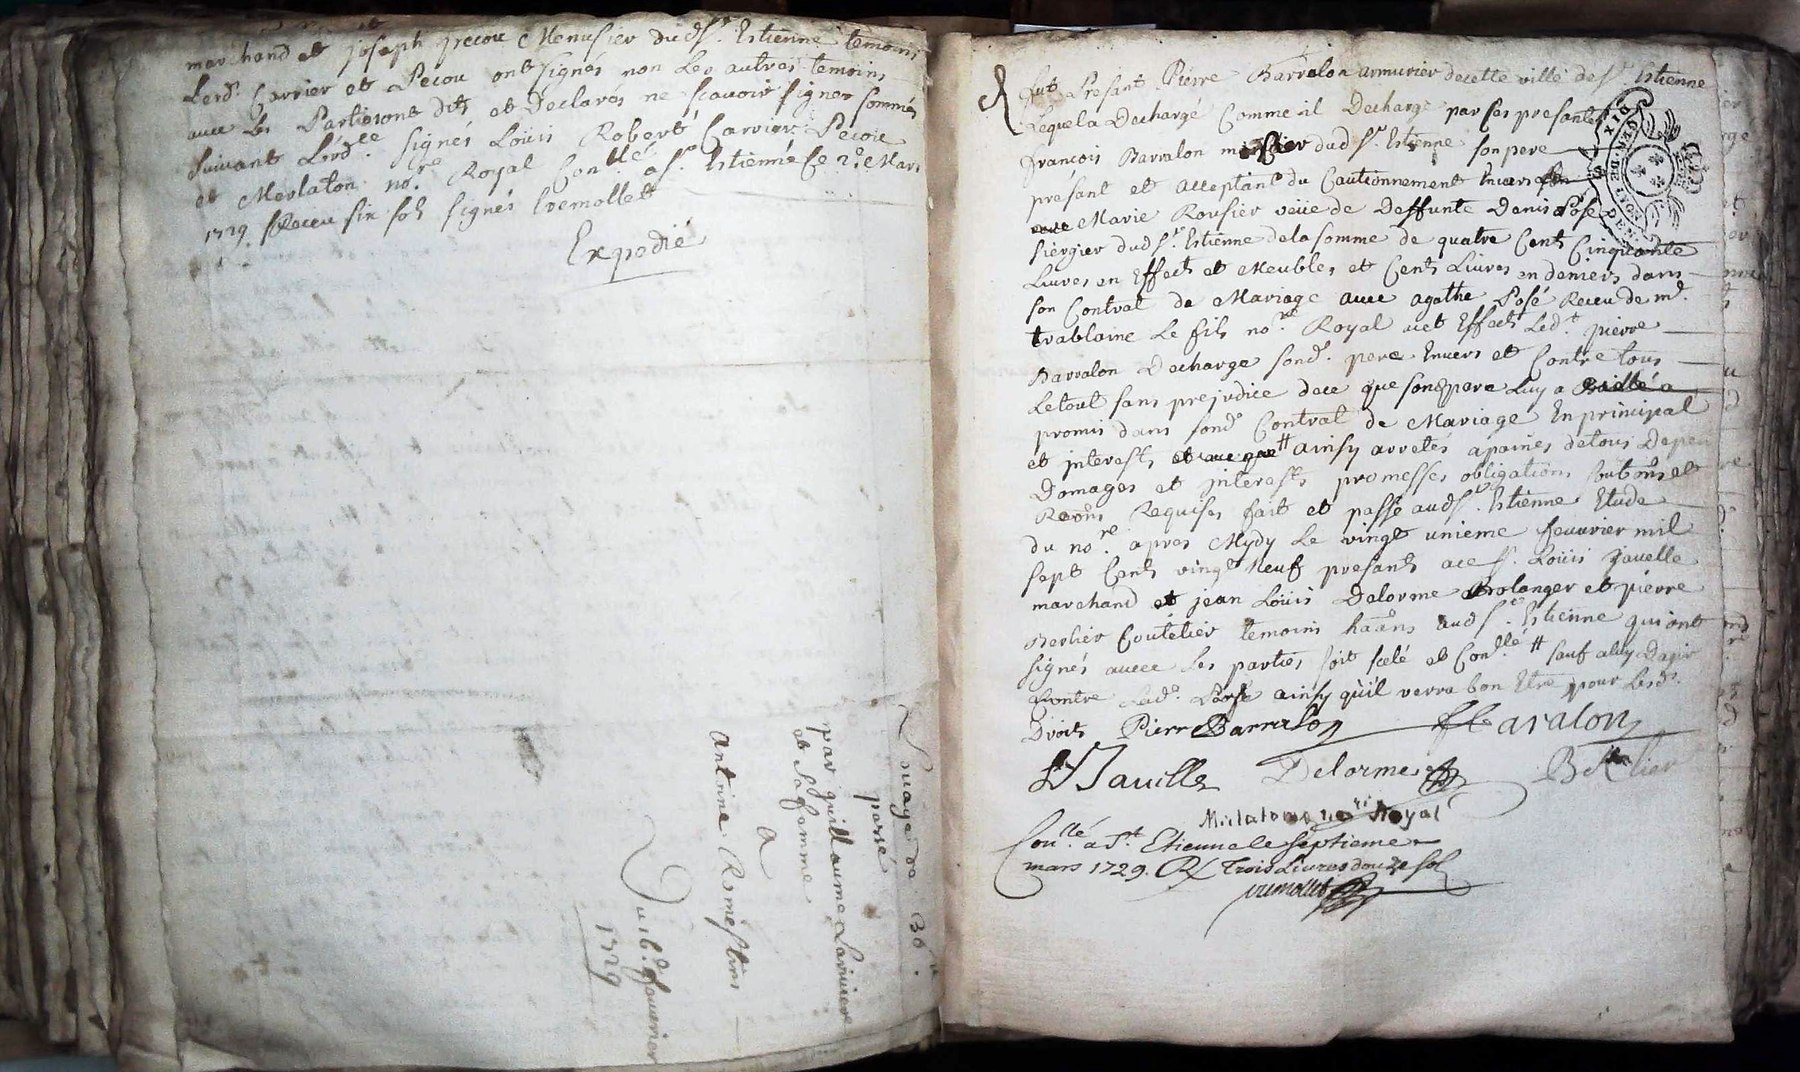 marchand et joseph precou Menusier dud St. Estienne temoins
Lesd. Carrier et Pecou ont signés non Les autres temoins
avec Les Parties ont dit et Declarés ne scavoir signer sommés
suivant L'ord.ce signés Loüis Robert Carrier Pecou
et Merlaton no.re Royal Con.llé a St. Estienne le 2.e Mars
1729 Receu six sols signés tremollet
Expedié
Loüage de 36
passé
par guillaume Lariviere
et sa femme
a
Antoine Remestin
Du 16.e fevrier
1729
fut Presant Pierre Barralon armurier decette ville de St. Estienne
Lequel a Dechargé Comme il Decharge par ses presantes
françois Barralon mercier dud St. Estienne son pere
présant et acceptant du Cautionnement Envers
Marie Rousier veüe de Deffunts Denis Posé
piergier dud St. Estienne de la somme de quatre Cents Cinquante
Livres en Effects et Meubles et Cents Livres en deniers dans
son Contrat de Mariage avec agathe Posé Receu de m.e
trablaine Le fils no.re Royal aiet Effect Led.t pierre
Barralon Decharge sond. pere Envers et Contre tous
Le tout sans prejudice de ce que sond pere Luy a
promis dans sond Contrat de Mariage En principal
et interests ainsy arretés a paines de tous Depens
Domages et interests promesses obligations soubms et
Renons Requises fait et passé aud St. Estienne Etude
du no.re apres Mydy Le vingt unieme feuvrier mil
sept Cents vingt Neuf presants a ce Sr. Loüis Javelle
marchand et jean Loüis Delorme Bolanger et pierre
Berlier Coutelier temoins haans aud St. Estienne qui ont
signés avec Les parties soit scelé et Con.llé # sauf a luy Dagir
Contre Lad. Posé ainsy qu'il verra bon Etre pour Lesd.
Droits Pierre Barralon f Baralon
Javelle Delorme Berlier
Merlaton no.re Royal
Con.llé a St. Etienne le septieme
mars 1729. R Trois Livres douze sols
tremollet